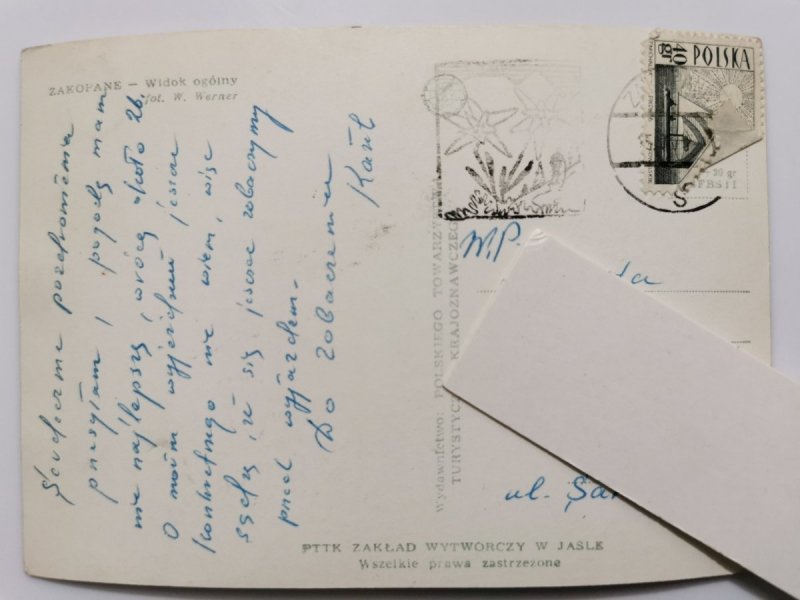 ZAKOPANE – Widok ogólny
fot. W. Werner
Serdeczne pozdrowienia
przesyłam, pogodę mam
nie najlepszą, wrócę około 26.
O moim wyjeździe jeszcze
konkretnego nie wiem, więc
sądzę, że się jeszcze zobaczymy
przed wyjazdem.
Do zobaczenia
Wydawnictwo: POLSKIEGO TOWARZYSTWA
TURYSTYCZ KRAJOZNAWCZEGO
40 gr POLSKA
W.P.
ul.
PTTK ZAKŁAD WYTWÓRCZY W JAŚLE
Wszelkie prawa zastrzeżone